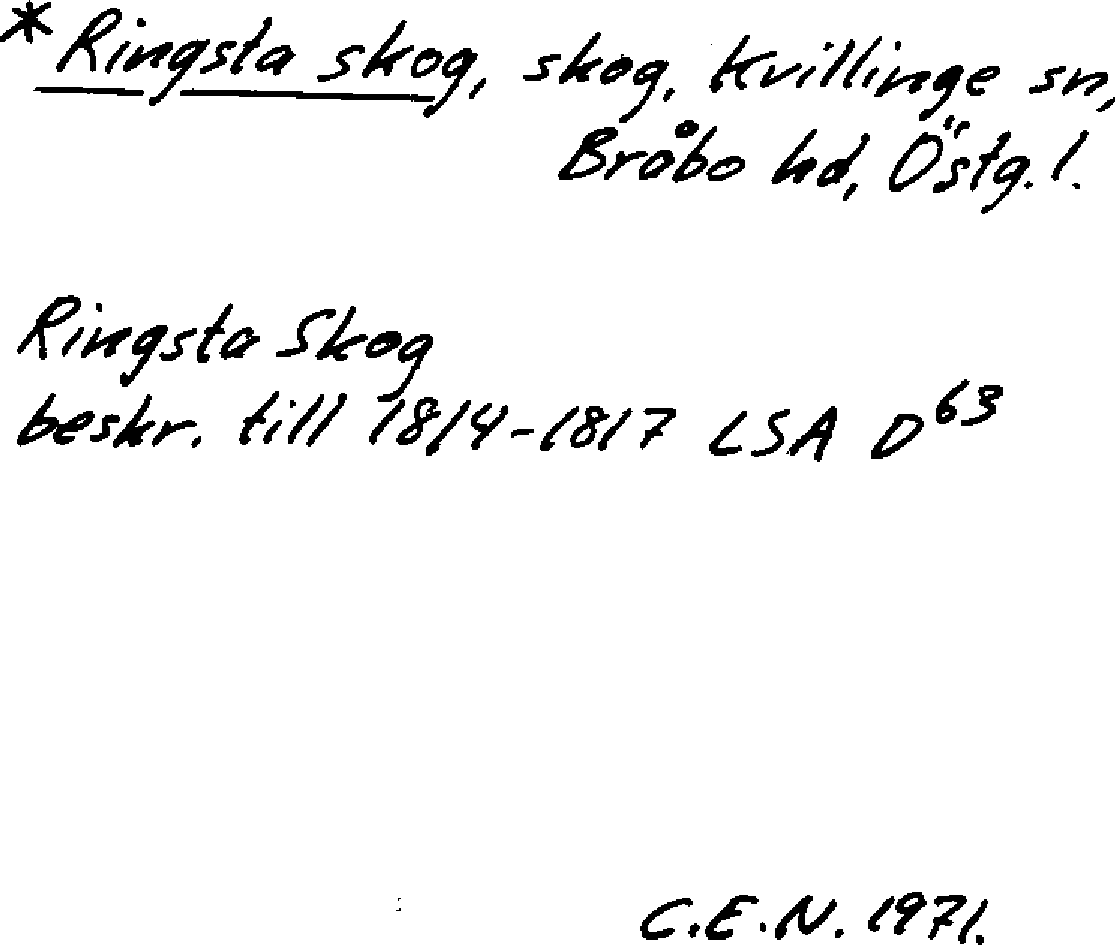 * Ringsta skog, skog, Kvillinge sn,
Bråbo hd, Östg. l.
Ringsta Skog
beskr. till 1814-1817 LSA D⁶³
C.E.N. 1971.